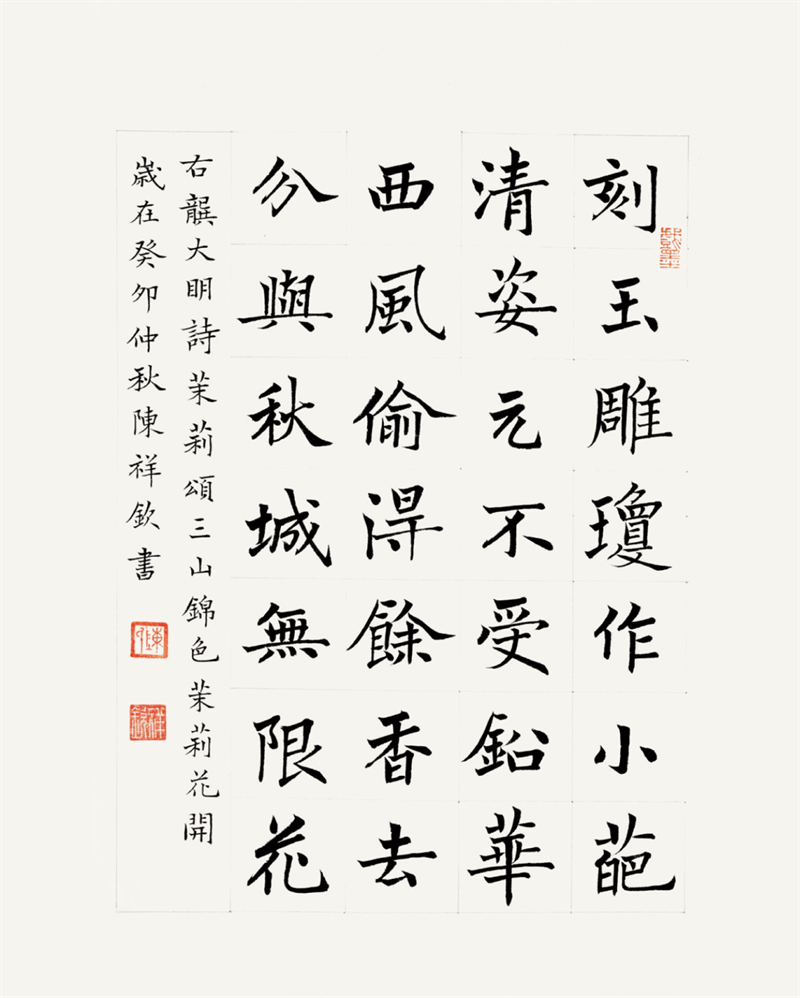 刻玉雕瓊作小葩
清姿元不受鉛華
西風偷得餘香去
分與秋城無限花
右龔大明詩茉莉頌三山錦色茉莉花開
歲在癸卯仲秋陳祥欽書
祥欽